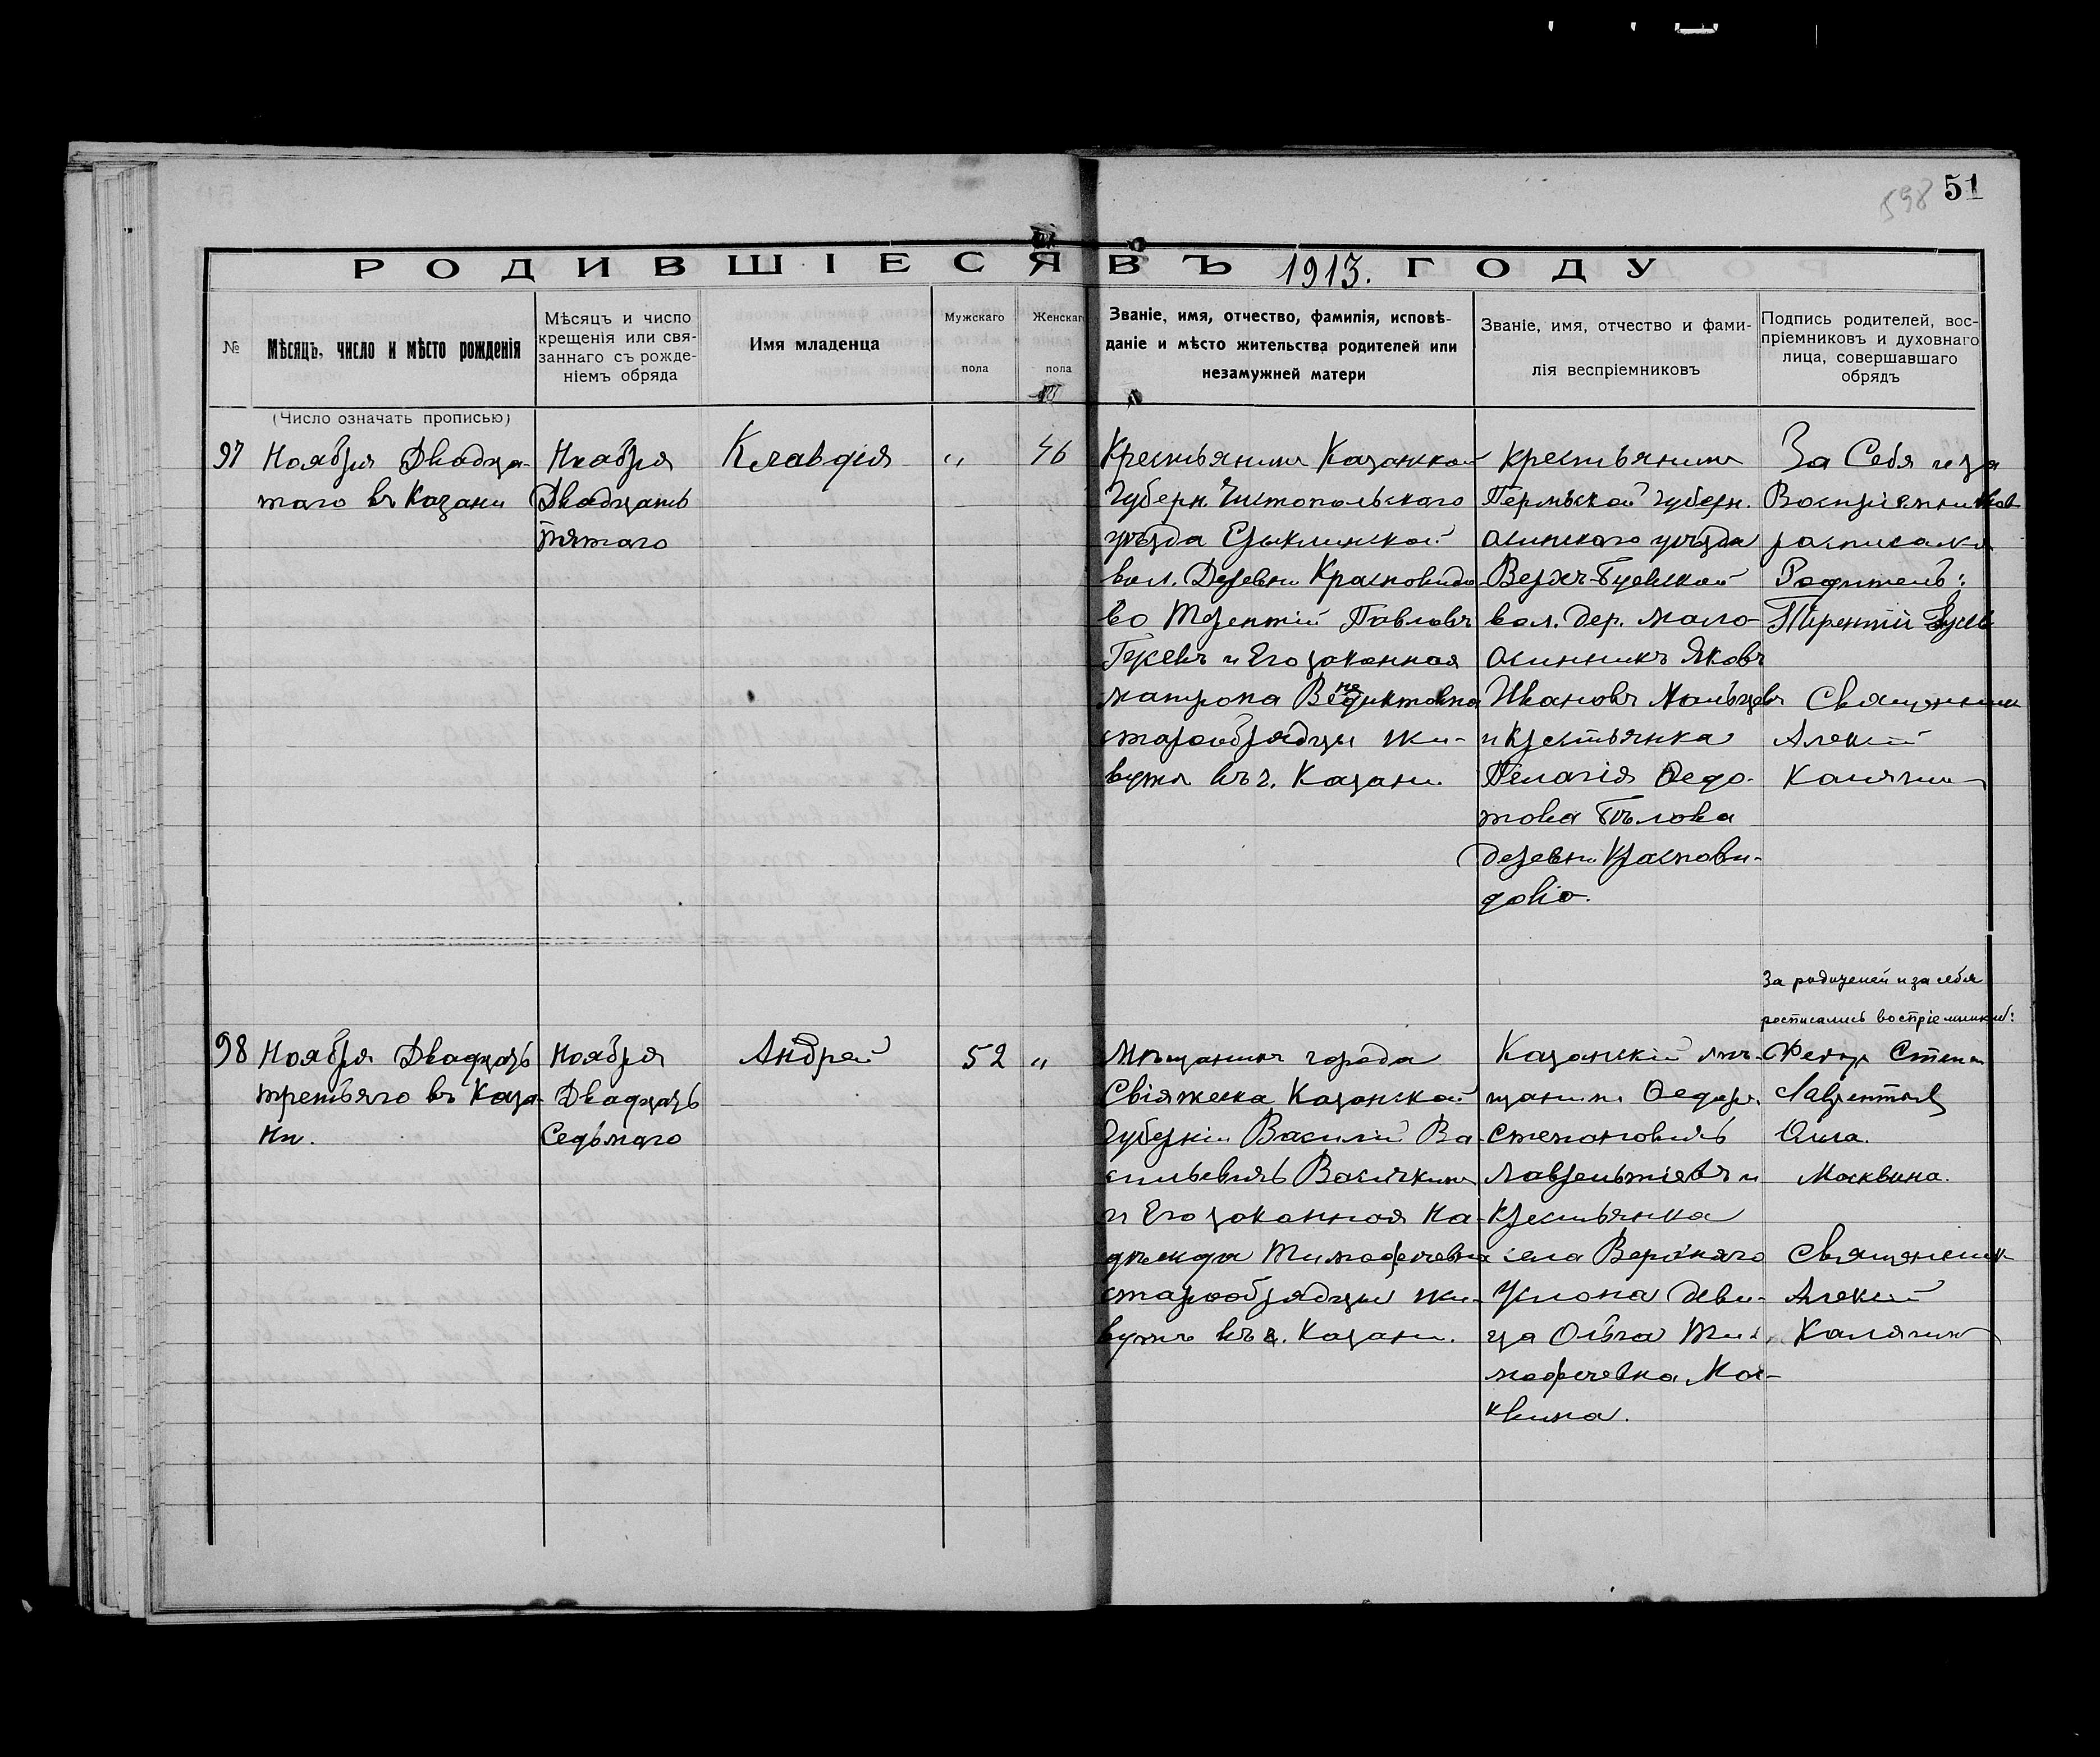 598 51
РОДИВШІЕСЯ ВЪ 1913. ГОДУ
№
Мѣсяцъ, число и мѣсто рожденія
Мѣсяцъ и число
крещенія или свя-
заннаго съ рожде-
ніемъ обряда
Имя младенца
Мужскаго
пола
Женскаго
пола
Званіе, имя, отчество, фамилія, исповѣ-
даніе и мѣсто жительства родителей или
незамужней матери
Званіе, имя, отчество и фами-
лія веспріемниковъ
Подпись родителей, вос-
пріемниковъ и духовнаго
лица, совершавшаго
обрядъ
(Число означать прописью)
97
Ноября Двадца-
таго въ Казани
Ноября
Двадцать
пятаго
Клавдія
„
46
Крестьянинъ Казанской
Губерн. Чистопольскаго
уѣзда
вол. Деревни Красновидо-
во Терентій Павловъ
и Его законная
матрона
старообрядцы жи-
вутъ въ г. Казани.
крестьянинъ
Пермьской губерн.
осинскаго уѣзда
Верхъ-Буевской
вол. дер. мало-
осинникъ Яковъ
Ивановъ Мальцевъ
и крестьянка
Пелагія Ѳедо-
това Бѣлова
деревни Краснови-
дово.
За Себя и за
Воспріемниковъ
росписался
Родитель:
Терентій
Священникъ
Алексій
Калягин
98
Ноября Двадцать
третьяго въ Каза-
ни.
Ноября
Двадцать
Седьмаго
Андрей
52
„
Мѣщанинъ города
Свіяжска Казанской
Губерніи Василій Ва-
сильевичъ Васичкинъ
и Его законная На-
дѣжда Тимофеевна
старообрядцы жи-
вутъ въ г. Казани.
Казанскій мѣ-
щанинъ Ѳедоръ
Степановичъ
Лаврентіевъ и
крестьянка
села Верхняго
Услона деви-
ца Ольга Ти-
мофеевна Мос-
квина.
За родителей и за себя
росписались воспріемники:
Федор Степан
Лаврентьев
Ольга.
Москвина.
Священникъ
Алексій
Калягин